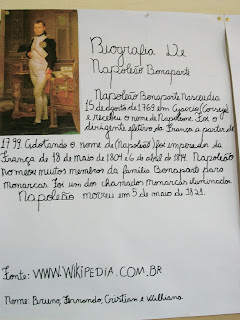 Biografia De
Napoleão Bonaparte
Napoleão Bonaparte Nasceu dia
15 de agosto de 1769 em Ajaccio (Corcega)
e recebeu o nome de Napoleone. Foi o
dirigente efetivo da França a partir de
1799. Adotando o nome de (Napoleão I) foi imperador da
França de 18 de maio de 1804 e 6 de abril de 1814. Napoleão
nomeou muitos membros da familia Bonaparte para
monarcas. Foi um dos chamados monarcas iluminados
Napoleão morreu em 5 de maio de 1821.
Fonte: WWW.Wikipedia.com.br
Nome: Bruno, Fernando, Cristian e Welhiana